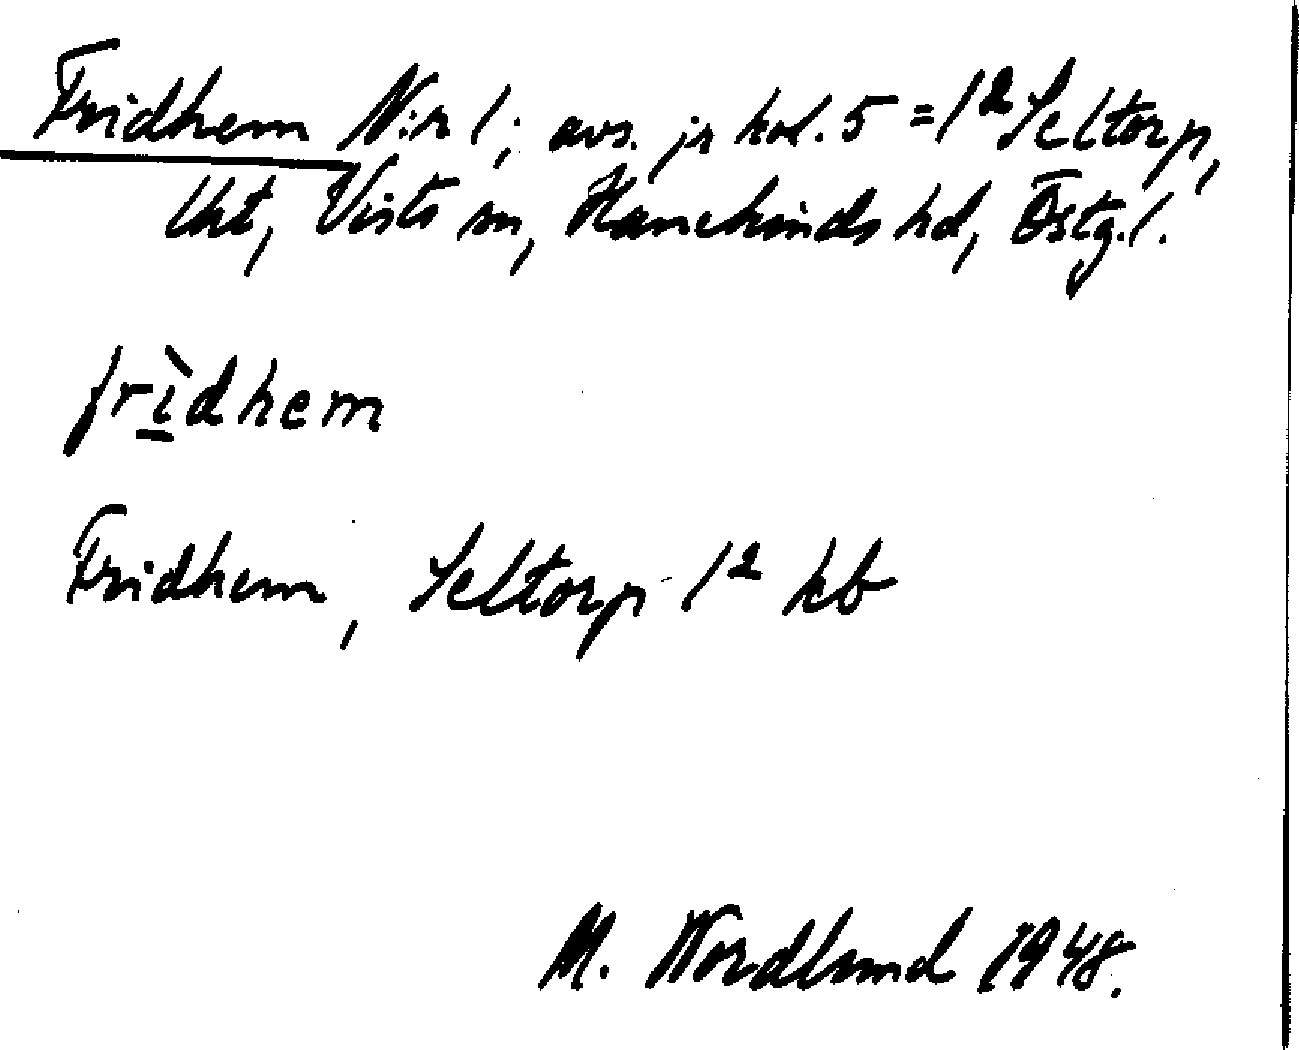 Fridhem N:r 1; avs. jr kol. 5 = 1² Seltorp,
lht, Vists sn, Hanekinds hd, Östg.l.
frìdhem
Fridhem, Seltorp 1² kb
M. Nordlund 1948.